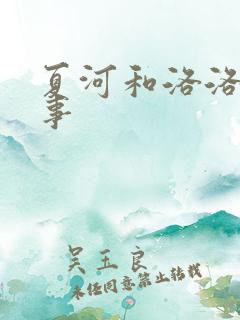 夏河和洛洛
事
吴玉良
未经同意禁止转载